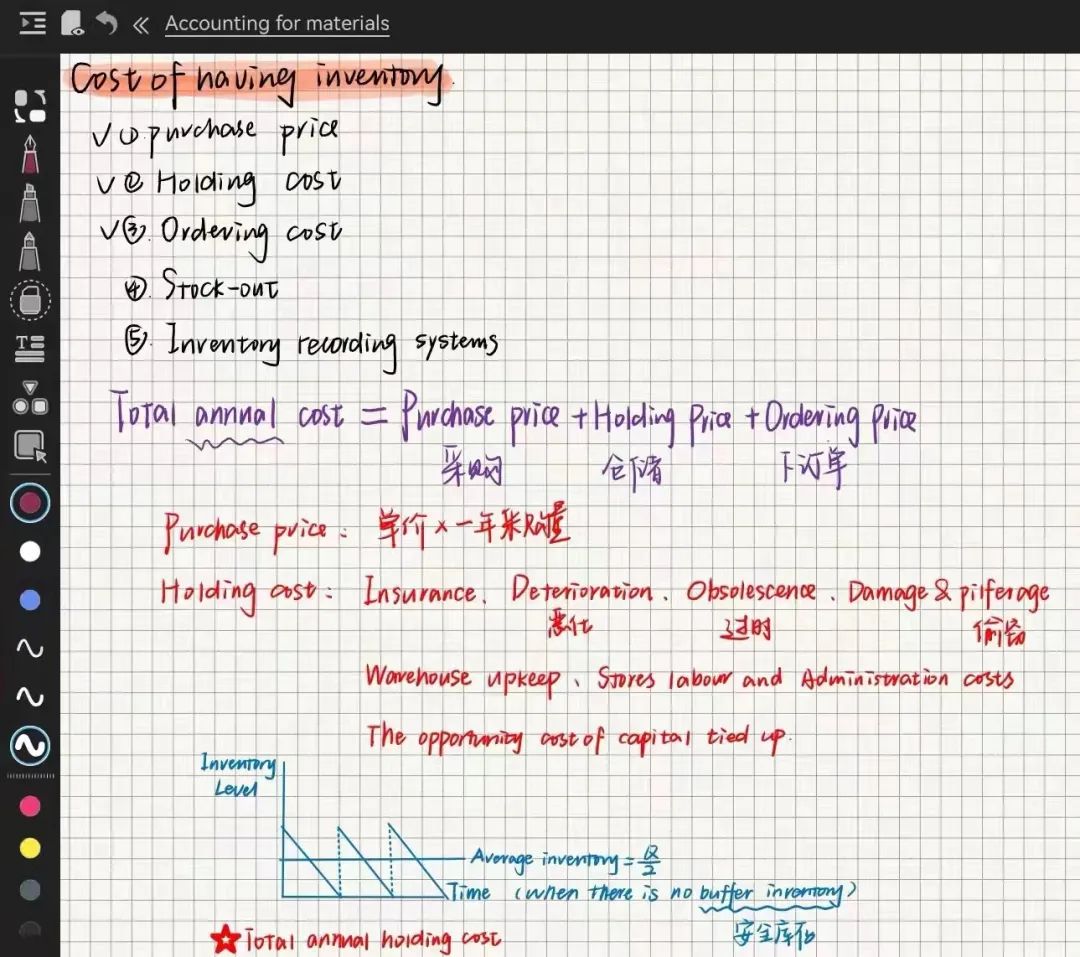 Accounting for materials
Cost of having inventory.
✓ ① purchase price
✓ ② Holding cost
✓ ③. Ordering cost
④. Stock-out
⑤. Inventory recording systems
Total annual cost = Purchase price + Holding Price + Ordering Price
采购 仓储 下订单
Purchase price: 单价 × 一年采购量
Holding cost: Insurance、Deterioration、Obsolescence、Damage & pilferage
恶化 过时 偷盗
Warehouse upkeep、Stores labour and Administration costs
The opportunity cost of capital tied up.
Inventory
Level
Average inventory = Q/2
Time (when there is no buffer inventory)
安全库存
☆ Total annual holding cost